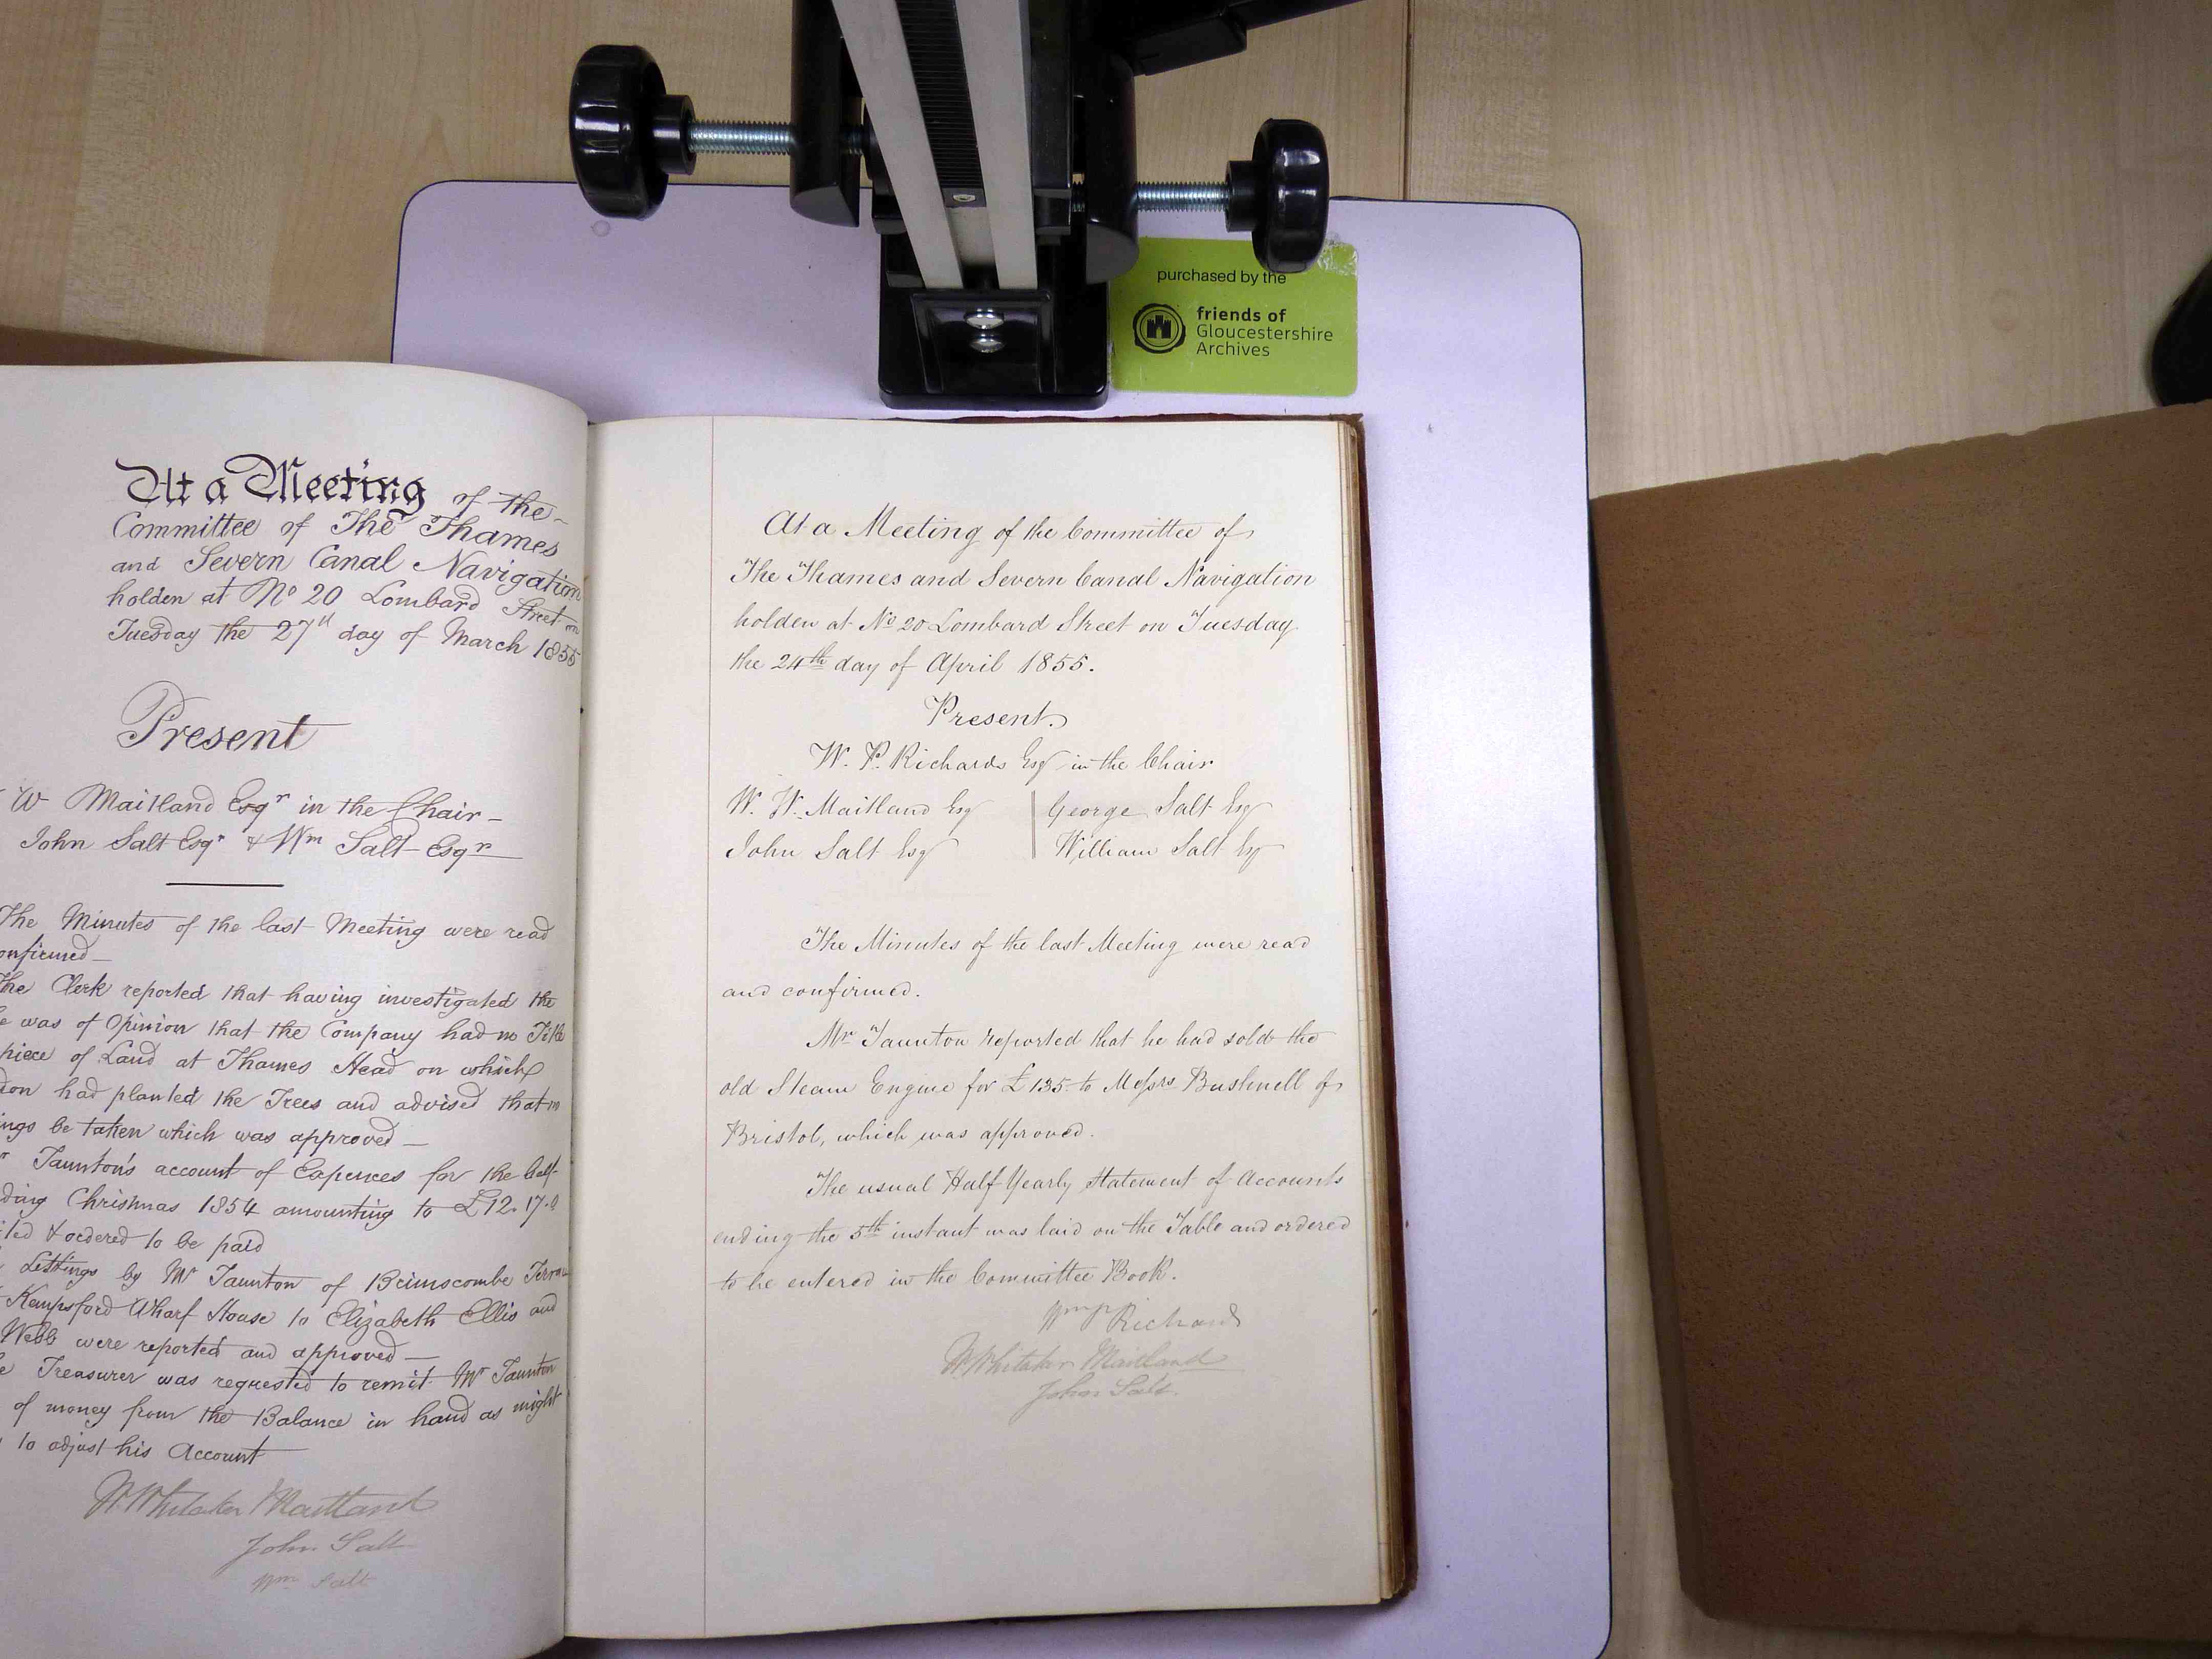 purchased by the
friends of
Gloucestershire
Archives
At a Meeting of the
Committee of The Thames
and Severn Canal Navigation
holden at No 20 Lombard Street on
Tuesday the 27th day of March 1855
Present
W Maitland Esqr in the Chair
John Salt Esqr & Wm Salt Esqr
The Minutes of the last Meeting were read
onfirmed
The Clerk reported that having investigated the
was of Opinion that the Company had no Title
piece of Land at Thames Head on which
on had planted the Trees and advised that no
ngs be taken which was approved
Taunton's account of Expences for the half
ding Chrismas 1854 amounting to £12.17.
ted & ordered to be paid
Lettings by Mr Taunton of Brimscombe
Kempsford Wharf House to Elizabeth Ellis and
Webb were reported and approved
Treasurer was requested to remit Mr Taunton
of money from the Balance in hand as might
to adjust his Account
W Whitaker Maitland
John Salt
Wm Salt
At a Meeting of the Committee of
The Thames and Severn Canal Navigation
holden at No 20 Lombard Street on Tuesday
the 24th day of April 1855.
Present.
W. P. Richards Esq in the Chair
W. W. Maitland Esq George Salt Esq
John Salt Esq William Salt Esq
The Minutes of the last Meeting were read
and confirmed.
Mr Taunton reported that he had sold the
old Steam Engine for £135 to Messrs Bushnell of
Bristol, which was approved.
The usual Half Yearly Statement of Accounts
ending the 5th instant was laid on the Table and ordered
to be entered in the Committee Book.
Wm P Richards
W Whitaker Maitland
John Salt.